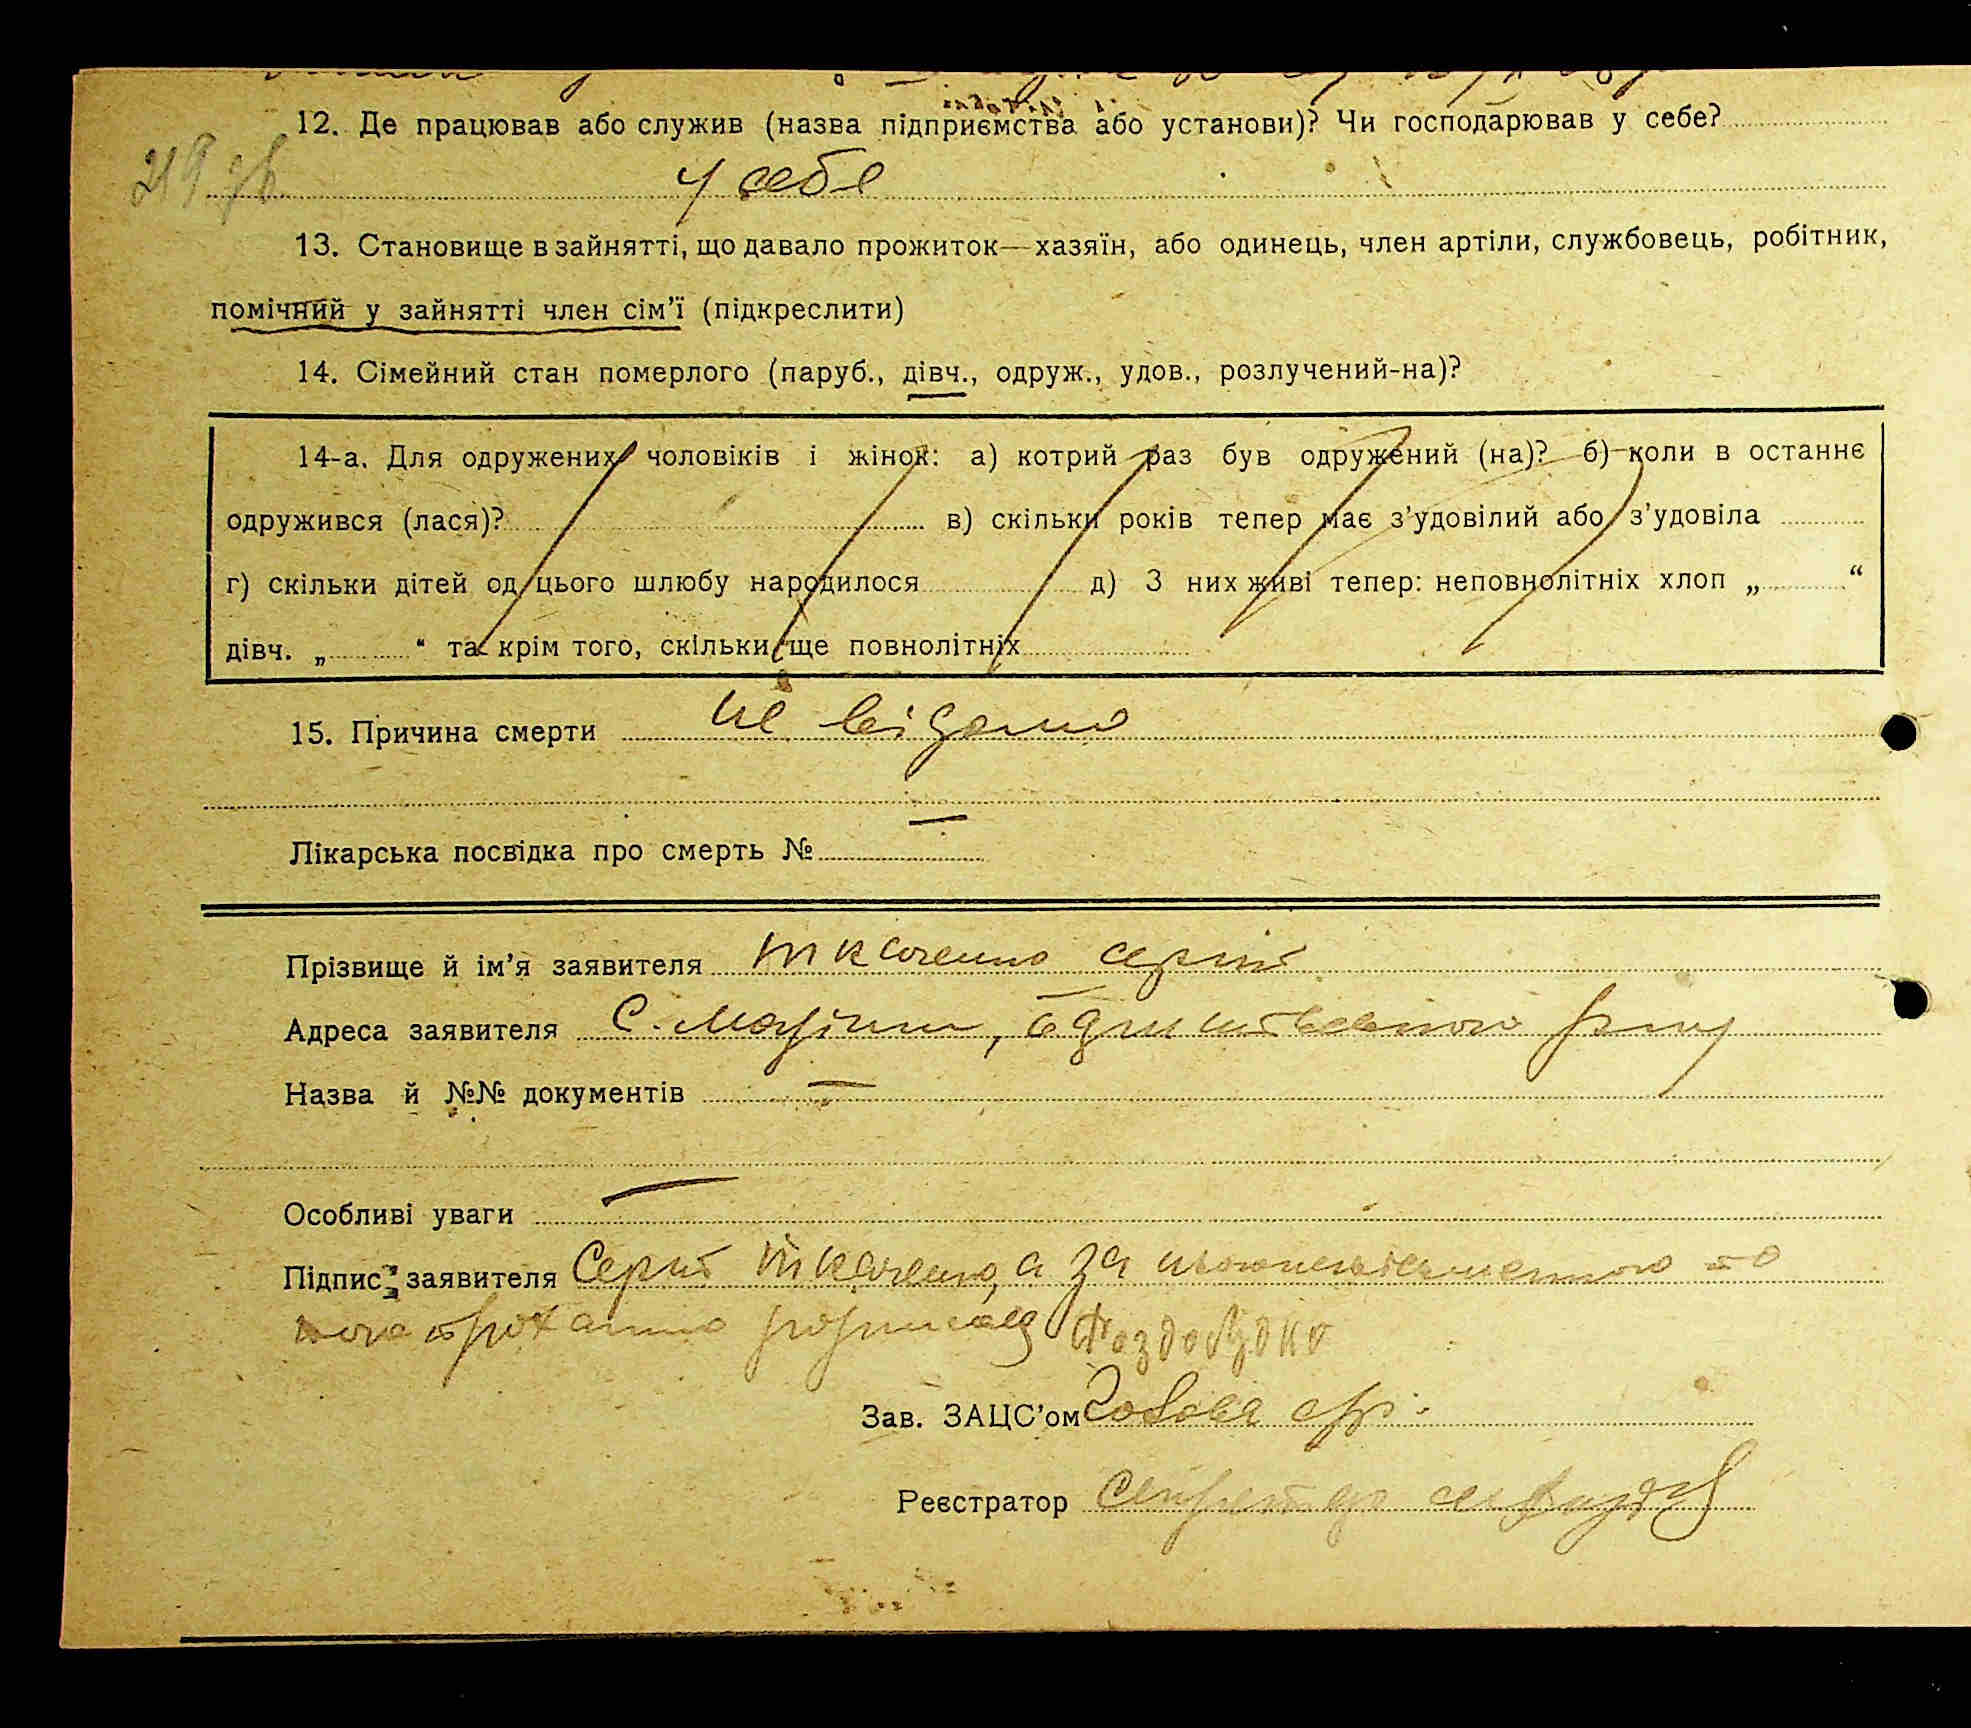 12. Де працював або служив (назва підприємства або установи)? Чи господарював у себе?
у себе
13. Становище в зайнятті, що давало прожиток—хазяїн, або одинець, член артіли, службовець, робітник,
помічний у зайнятті член сім’ї (підкреслити)
14. Сімейний стан померлого (паруб., дівч., одруж., удов., розлучений-на)?
14-а. Для одружених чоловіків і жінок: а) котрий раз був одружений (на)? б) коли в останнє
одружився (лася)? в) скільки років тепер має з’удовілий або з’удовіла
г) скільки дітей од цього шлюбу народилося д) З них живі тепер: неповнолітніх хлоп „ “
дівч. „ “ та крім того, скільки ще повнолітніх
15. Причина смерти не відомо
Лікарська посвідка про смерть № —
Прізвище й ім’я заявителя Ткаченко Сергій
Адреса заявителя С.
Назва й №№ документів —
Особливі уваги —
Підпис заявителя Сергій Ткаченко, а за
прохання
Зав. ЗАЦС’ом Голова с/р.
Реєстратор Секретар сільради